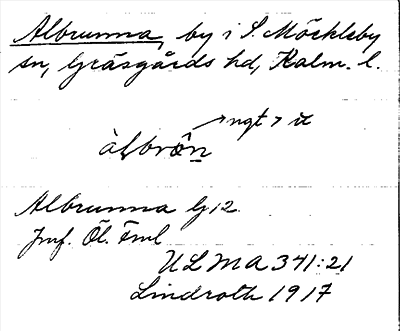 Albrunna, by i S. Möckleby
sn, Gräsgårds hd, Kalm. l.
→ngt > it
àlbrǿn
Albrunna G 12
Jmf. Öl. Fml
ULMA 341:21
Lindroth 1917